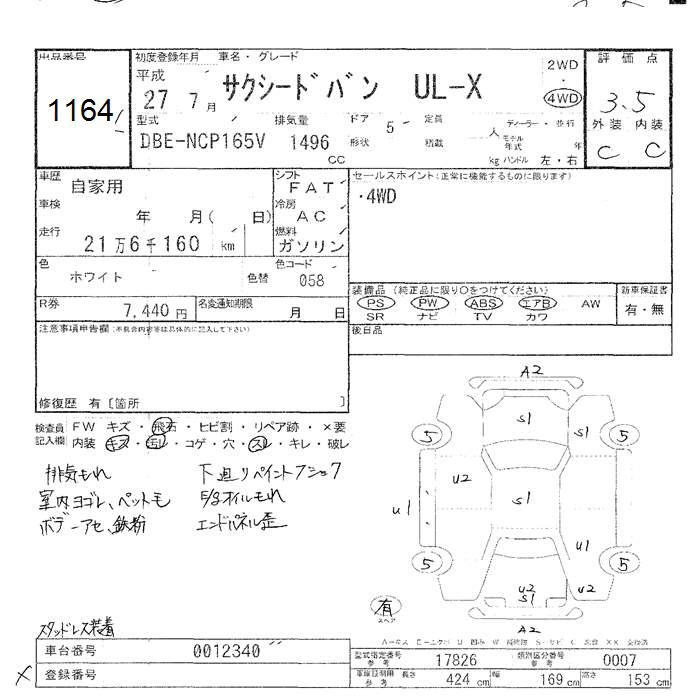 出品番号
1164
初度登録年月 車名・グレード
平成
27 7月 サクシードバン UL-X
2WD
・
4WD
評価点
3.5
外装 内装
C C
型式 排気量 ドア 5 定員 人 ディーラー・並行
DBE-NCP165V 1496 CC 形状 積載 kg モデル年式 年
ハンドル 左・右
車歴 自家用
シフト FAT
車検 年 月( 日)
冷房 AC
走行 21万6千160 km
燃料 ガソリン
色 ホワイト 色替
色コード 058
R券 7,440円 名変通知期限 月 日
セールスポイント(正常に機能するものに限ります)
・4WD
装備品 (純正品に限り○をつけてください)
PS PW ABS エアB AW
SR ナビ TV カワ
新車保証書
有・無
後日品
注意事項申告欄(不具合内容等は具体的に記入して下さい)
修復歴 有〔箇所 〕
検査員記入欄 FW キズ・飛石・ヒビ割・リペア跡・×要
内装 キズ・汚レ・コゲ・穴・スレ・キレ・破レ
排気もれ
室内ヨゴレ、ペット毛
ボデーアセ、鉄粉
下廻りペイント
オイルもれ
エンドパネル歪
A2
S1
S1
5 5
U2
S1
U1
U1
5 5
U2
S1
U2
A2
有
スペア
スタッドレス装着
車台番号 0012340
登録番号
型式指定番号 参考 17826 類別区分番号 参考 0007
車検証制用 参考 長さ 424 cm 幅 169 cm 高さ 153 cm